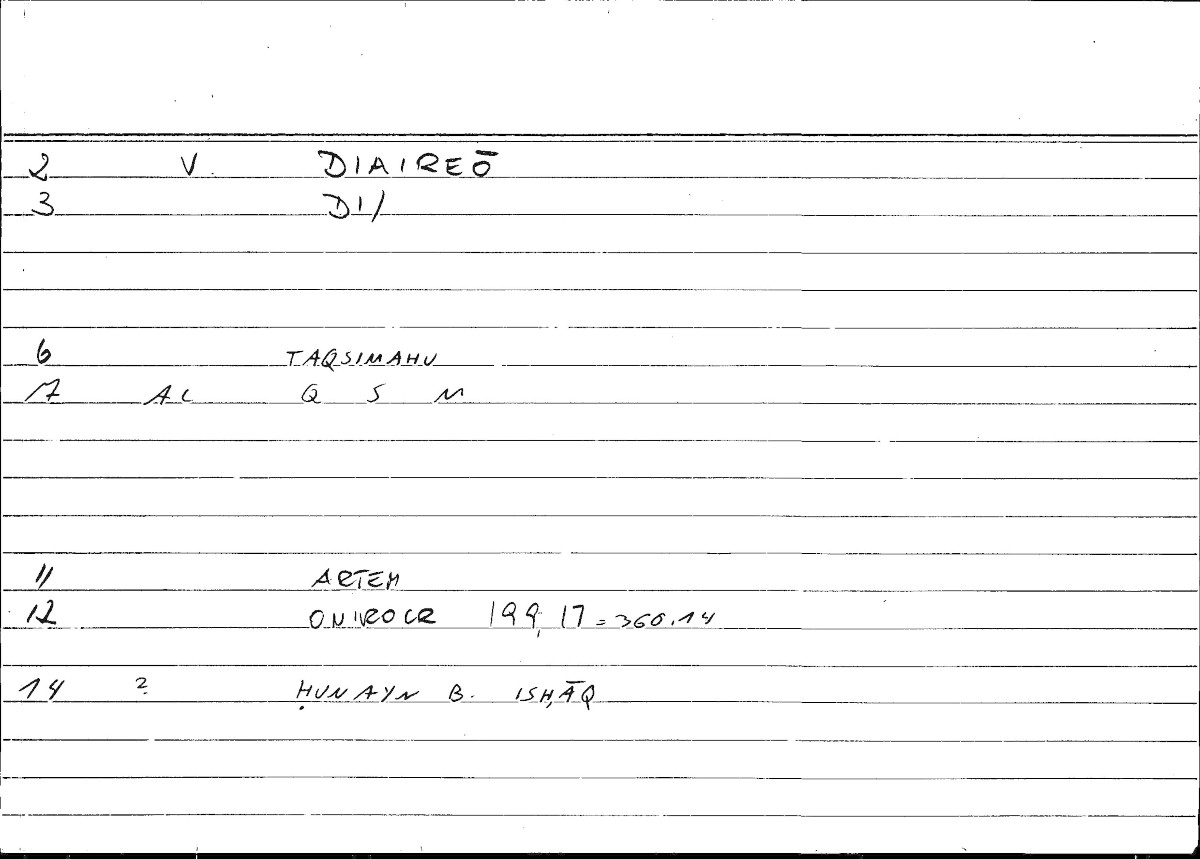 2 V. DIAIREŌ
3 DI/
6 TAQSIMAHU
7 AL Q S M
11 ARTEM
12 ONIROCR 199,17 = 360.14
14 ? ḤUNAYN B. ISḤĀQ